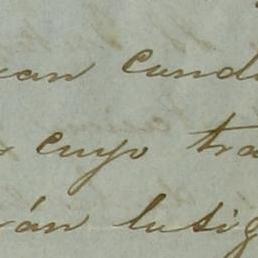 van cond
cuyo tra
rán lusig